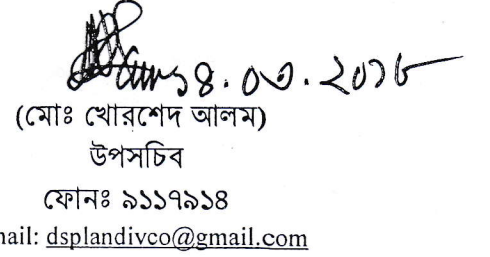 ১৪.০৩.২০১৮
(মোঃ খোরশেদ আলম)
উপসচিব
ফোনঃ ৯১১৭৯১৪
nail: dsplandivco@gmail.com